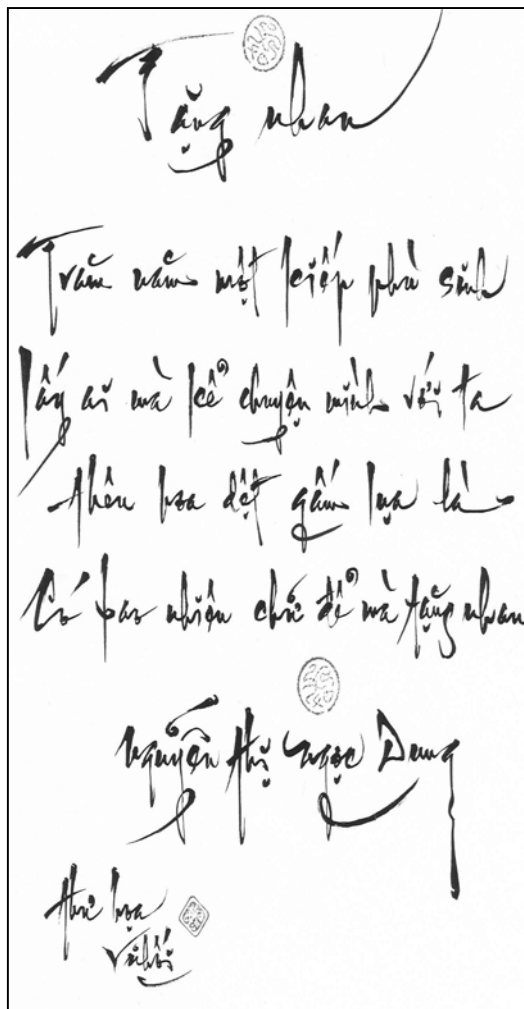 Tặng nhau
Trăm năm một kiếp phù sinh
lấy ai mà kể chuyện mình với ta
thêu hoa dệt gấm lụa là
Có bao nhiêu chữ để mà tặng nhau
Nguyễn thị Ngọc Dung
thư họa
Vũ Hối